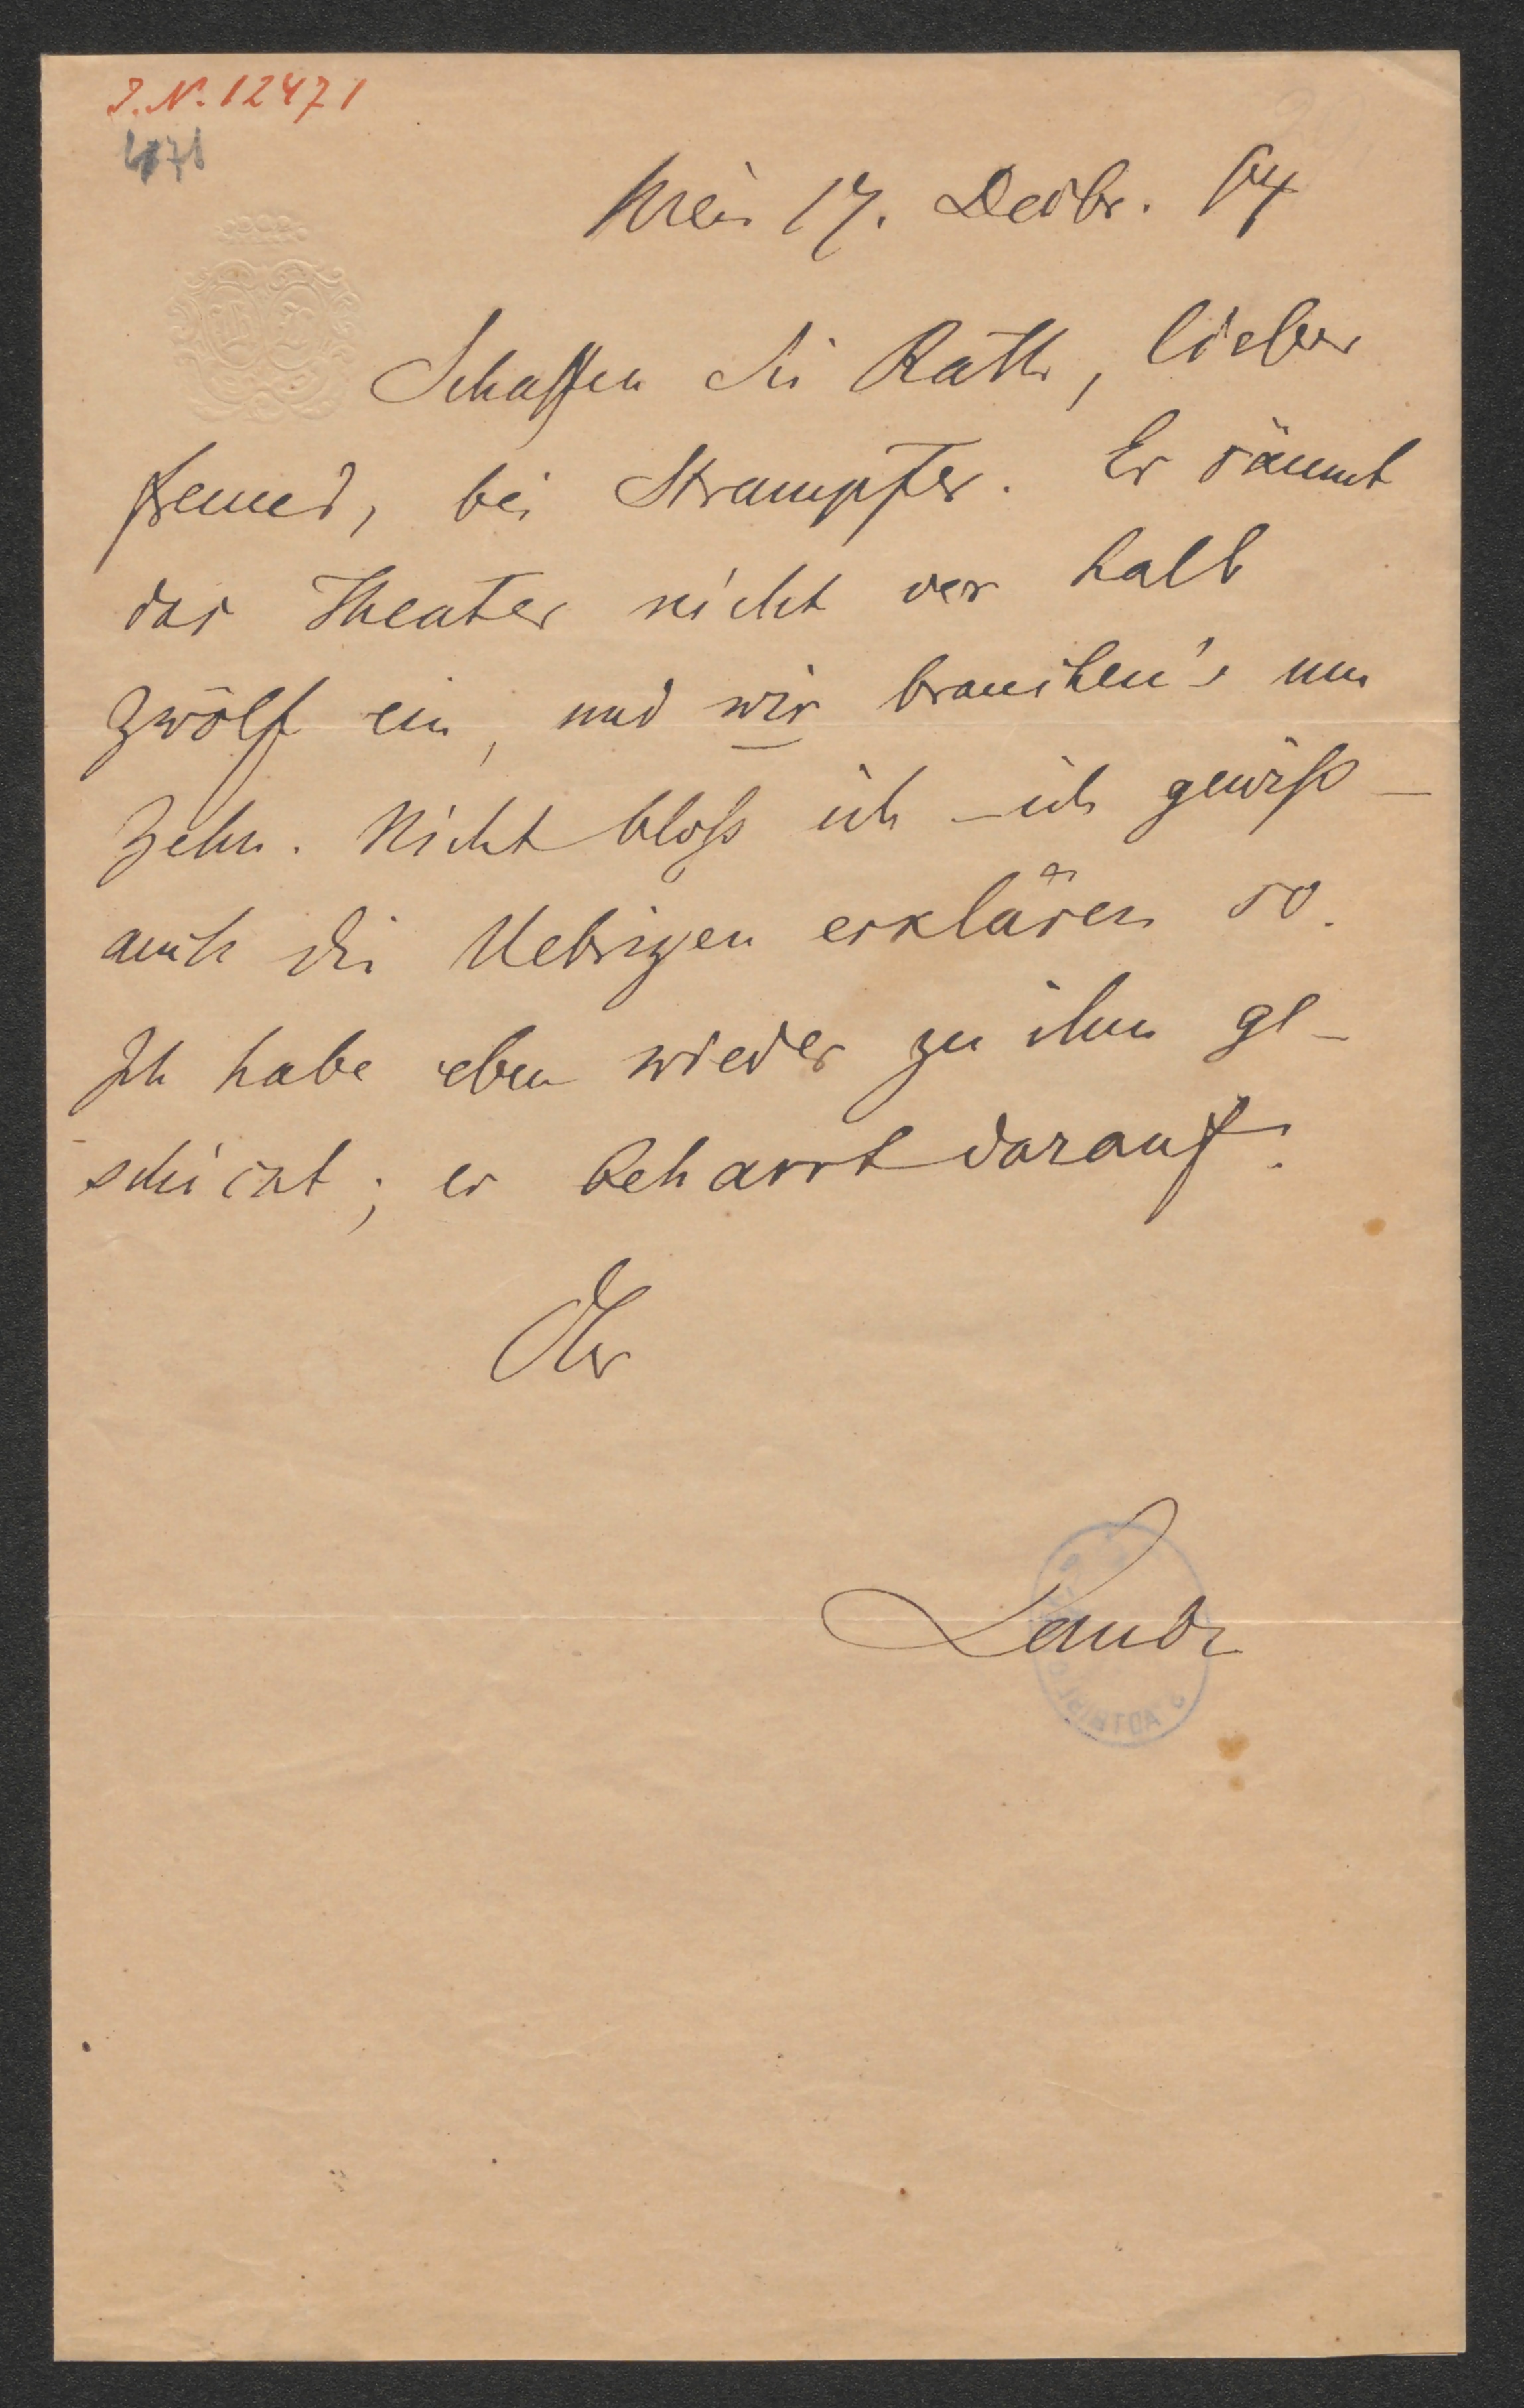 J.N. 12471
Wien 17. Decbr. 74
Schaffen Sie Rath, lieber
Freund, bei Strampfer. Er räumt
das Theater nicht vor halb
zwölf ein, und wir brauchen's um
zehn. Nicht bloß ich – ich gewiß –
auch die Uebrigen erklären so.
Ich habe eben wieder zu ihm ge-
schickt; er beharrt darauf.
Ihr
Laube